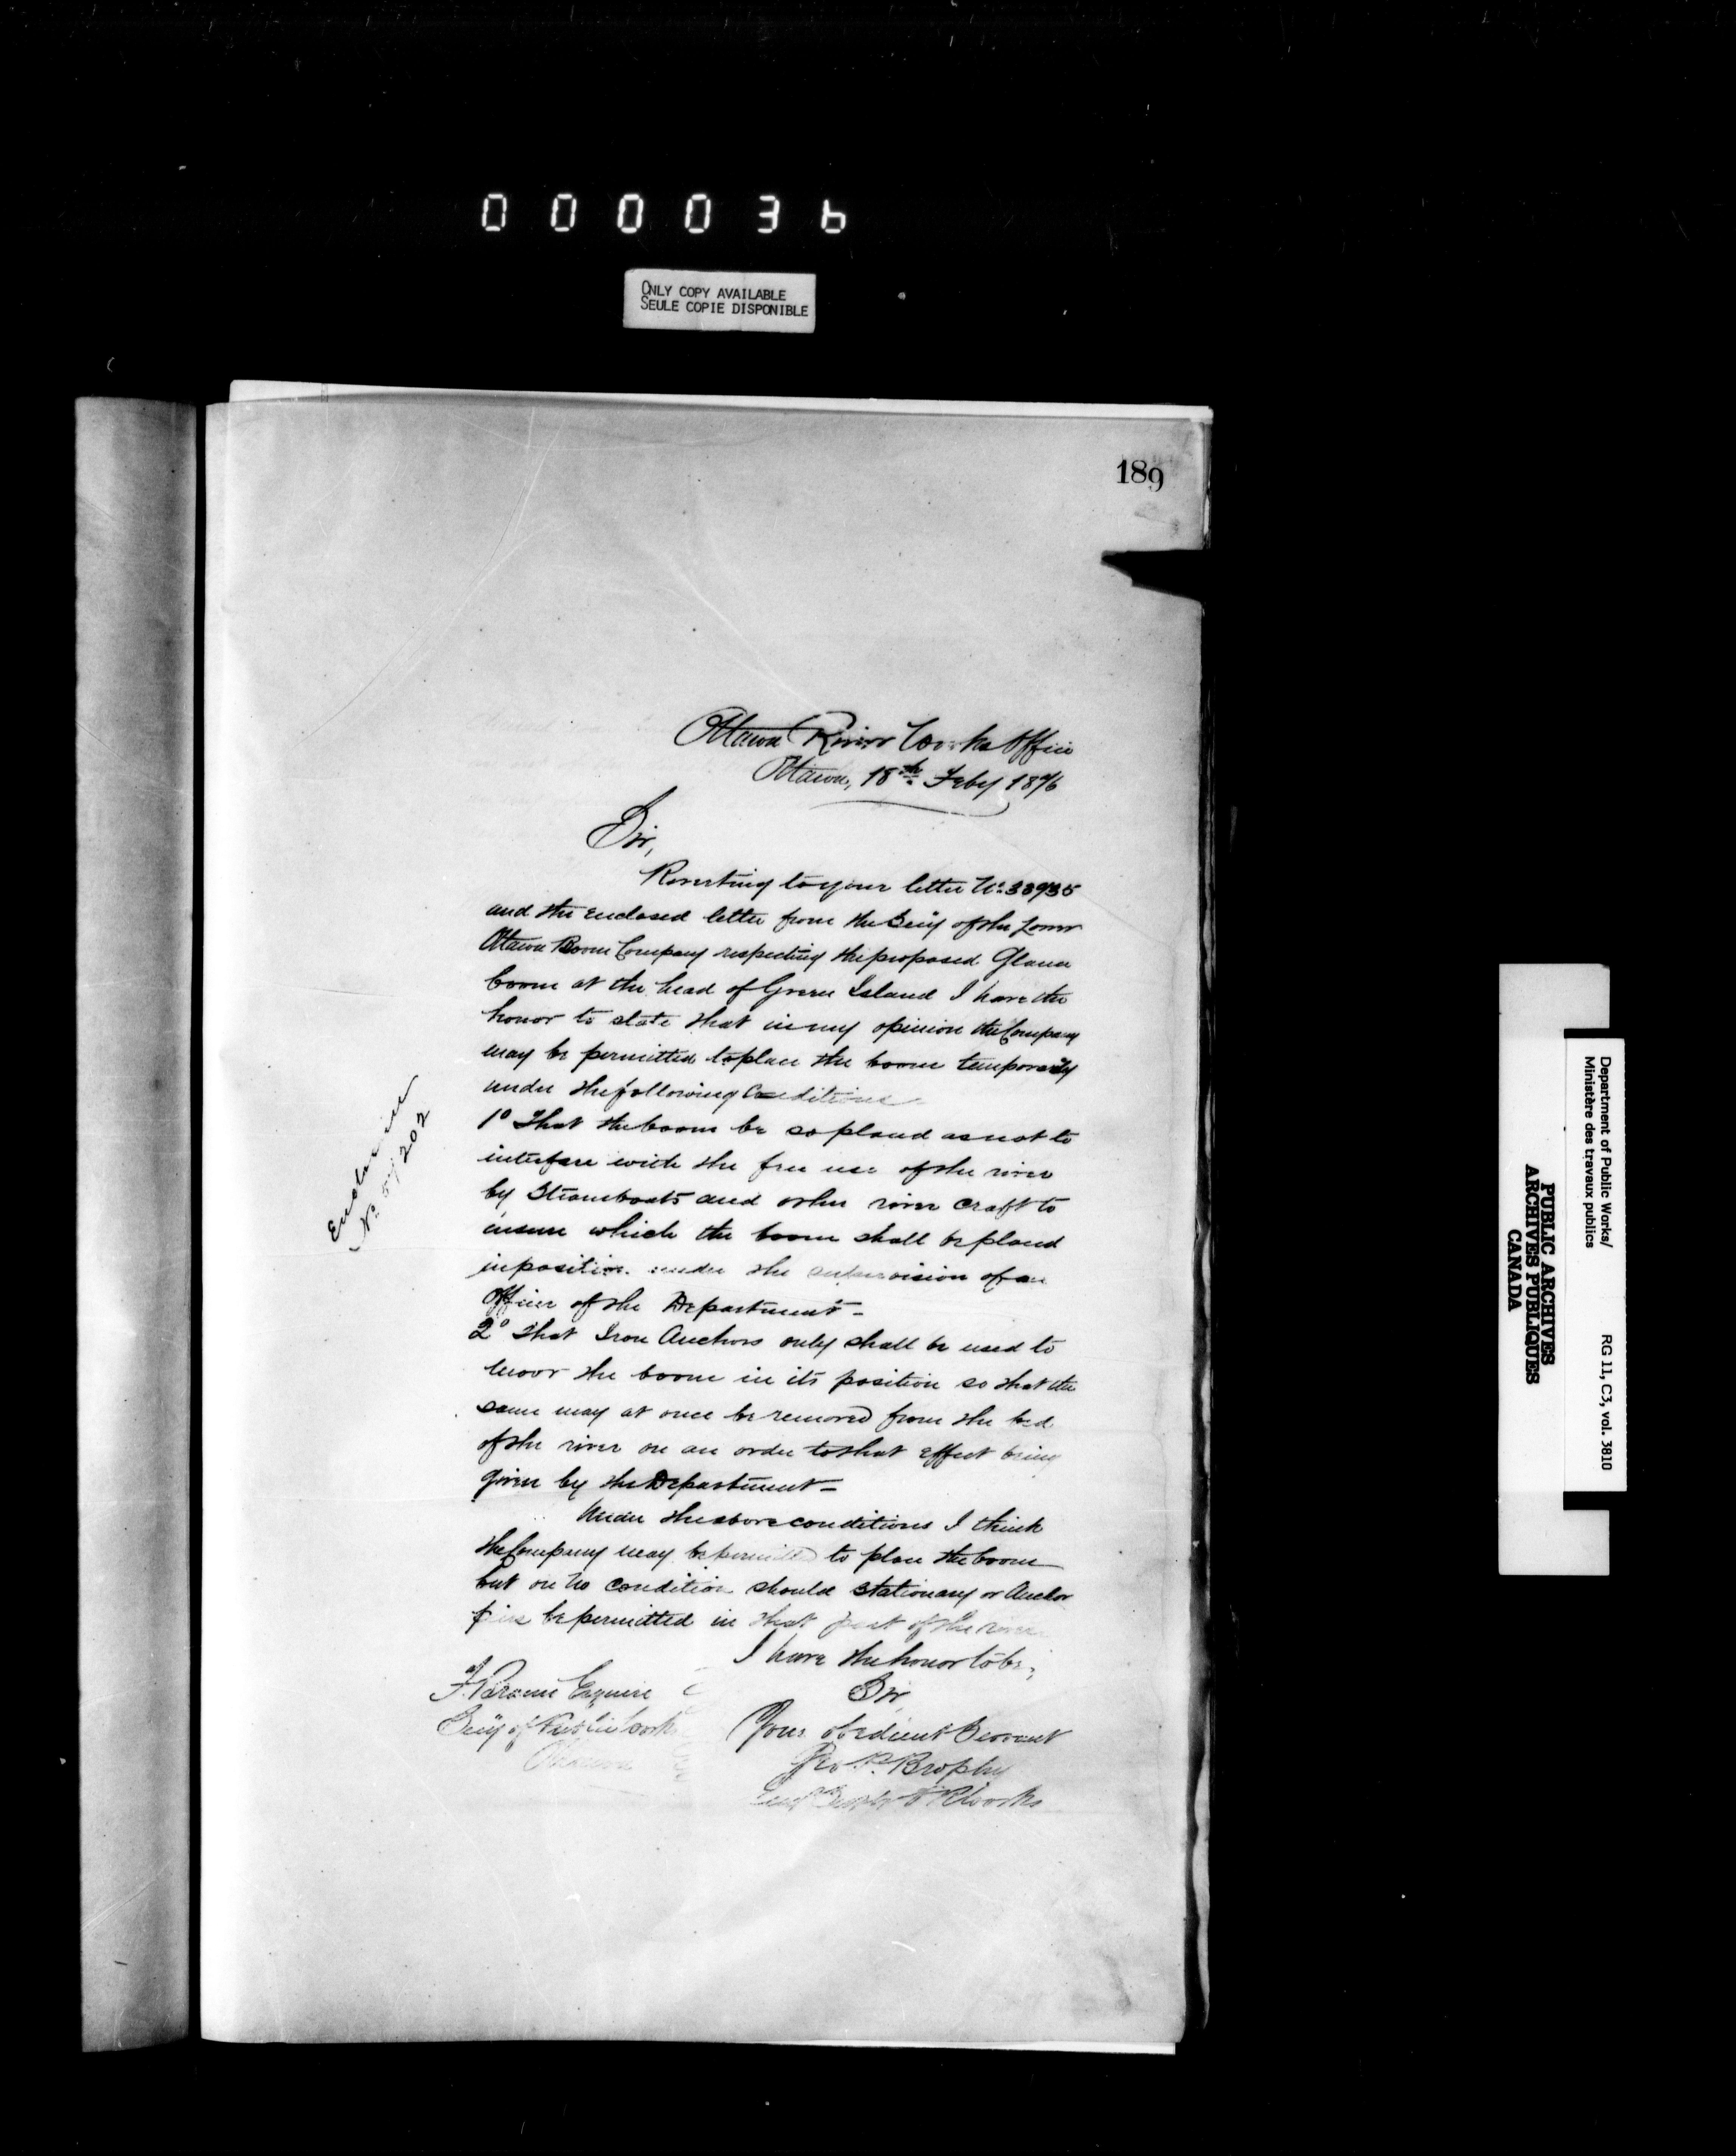 000036
ONLY COPY AVAILABLE
SEULE COPIE DISPONIBLE
189
Ottawa River Works Office
Ottawa, 18th Feby 1876
Sir,
Reverting to your letter No. 33935
and the enclosed letter from the Secy of the Lower
Ottawa Boom Company respecting the proposed Glance
boom at the head of Green Island I have the
honor to state that in my opinion the Company
may be permitted to place the boom temporarily
under the following Conditions
1o That the boom be so placed as not to
interfere with the free use of the river
by Steamboats and other river craft to
insure which the boom shall be placed
in position under the supervision of an
Officer of the Department -
2o That Iron Anchors only shall be used to
moor the boom in its position so that the
same may at once be removed from the bed
of the river on an order to that effect being
given by the Department -
Under the above conditions I think
the Company may be permitted to place the boom
but on no condition should stationary or Anchor
piers be permitted in that part of the river
I have the honor to be,
Sir
Your obedient Servant
Geo. P. Brophy
F. Braun Esquire
Secy of Public Works
Ottawa
Enclosure
No. 57202
Department of Public Works/
Ministère des travaux publics
RG 11, C3, vol. 3810
PUBLIC ARCHIVES
ARCHIVES PUBLIQUES
CANADA